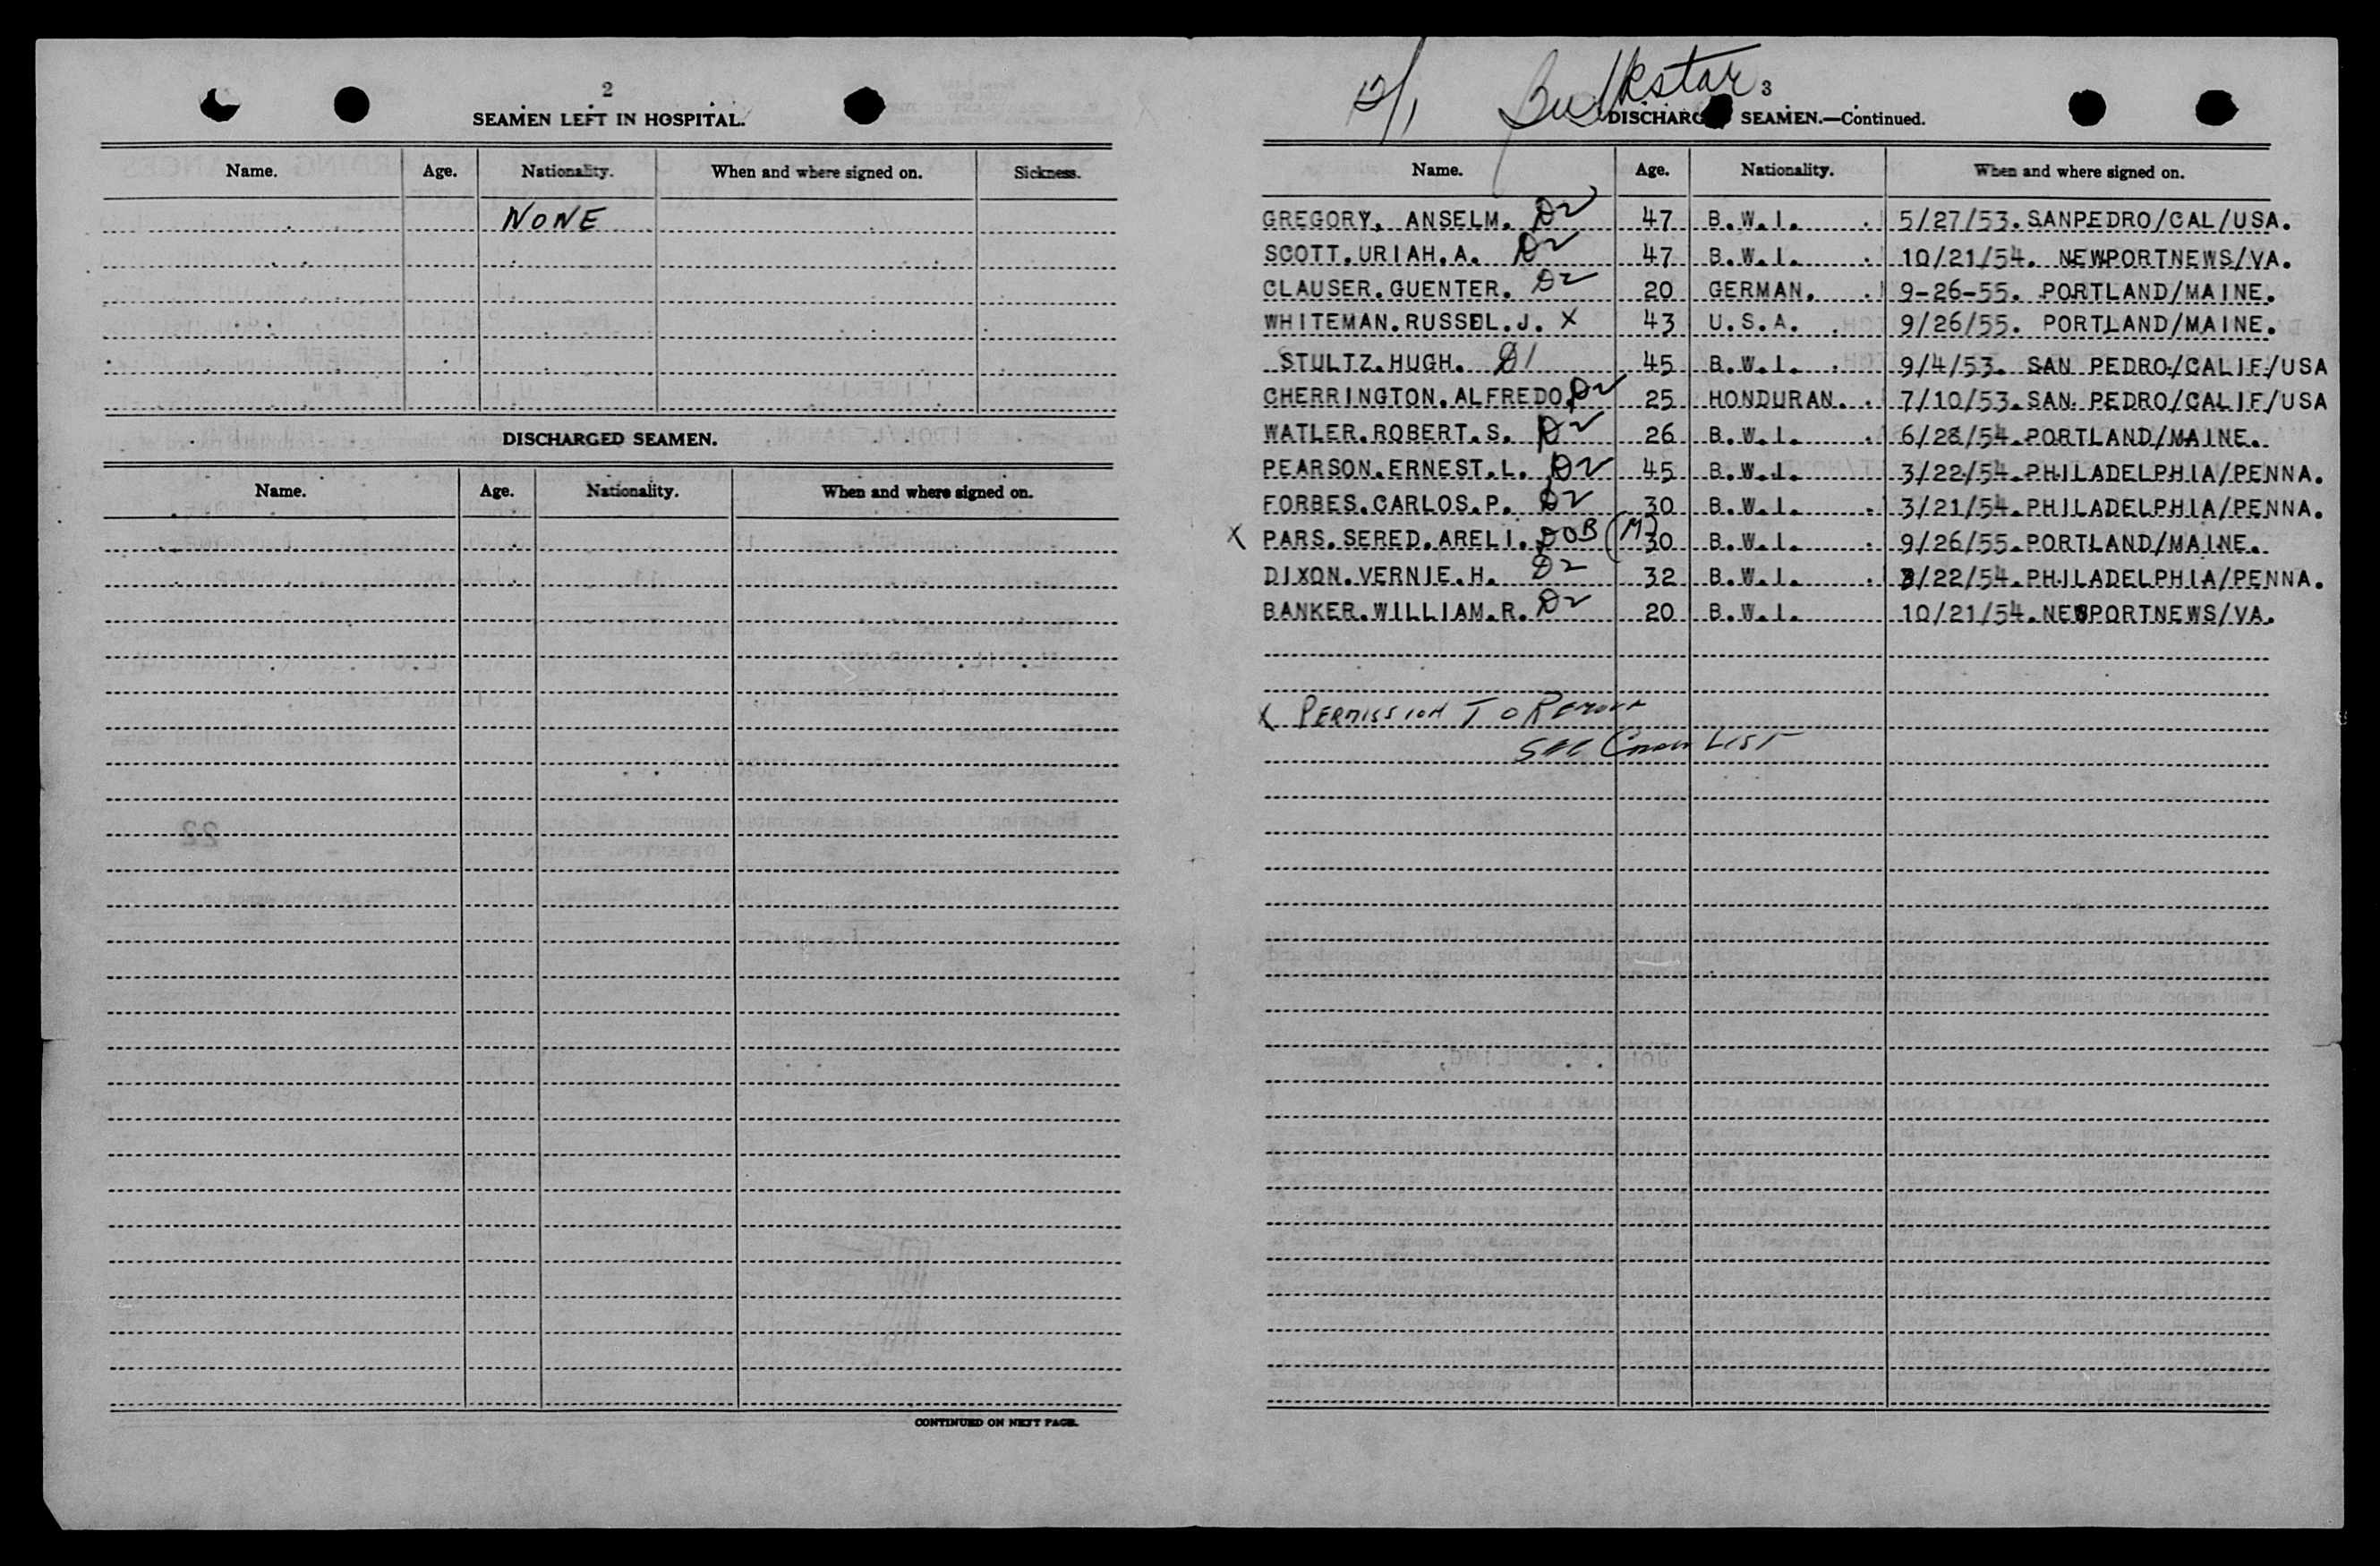 2
SEAMEN LEFT IN HOSPITAL.
Name. Age. Nationality. When and where signed on. Sickness.
NONE
DISCHARGED SEAMEN.
Name. Age. Nationality. When and where signed on.
22
CONTINUED ON NEXT PAGE.
12/1 Bulkstar 3
DISCHARG SEAMEN.—Continued.
Name. Age. Nationality. When and where signed on.
GREGORY. ANSELM. D2 47 B.W.I. 5/27/53. SANPEDRO/CAL/USA.
SCOTT.URIAH.A. D2 47 B.W.I. 10/21/54. NEWPORTNEWS/VA.
CLAUSER.GUENTER. D2 20 GERMAN. 9-26-55. PORTLAND/MAINE.
WHITEMAN.RUSSEL.J. X 43 U.S.A. 9/26/55. PORTLAND/MAINE.
STULTZ.HUGH. D1 45 B.W.I. 9/4/53. SAN PEDRO/CALIF/USA
CHERRINGTON.ALFREDO. D2 25 HONDURAN. 7/10/53.SAN PEDRO/CALIF/USA
WATLER.ROBERT.S. D2 26 B.W.I. 6/28/54.PORTLAND/MAINE.
PEARSON.ERNEST.L. D2 45 B.W.I. 3/22/54.PHILADELPHIA/PENNA.
FORBES.CARLOS.P. D2 30 B.W.I. 3/21/54.PHILADELPHIA/PENNA.
X PARS.SERED.ARELI. DOB (M) 30 B.W.I. 9/26/55.PORTLAND/MAINE.
DIXON.VERNIE.H. D2 32 B.W.I. 3/22/54.PHILADELPHIA/PENNA.
BANKER.WILLIAM.R. D2 20 B.W.I. 10/21/54.NEWPORTNEWS/VA.
X PERMISSION TO REMOVE
SEE CREW LIST